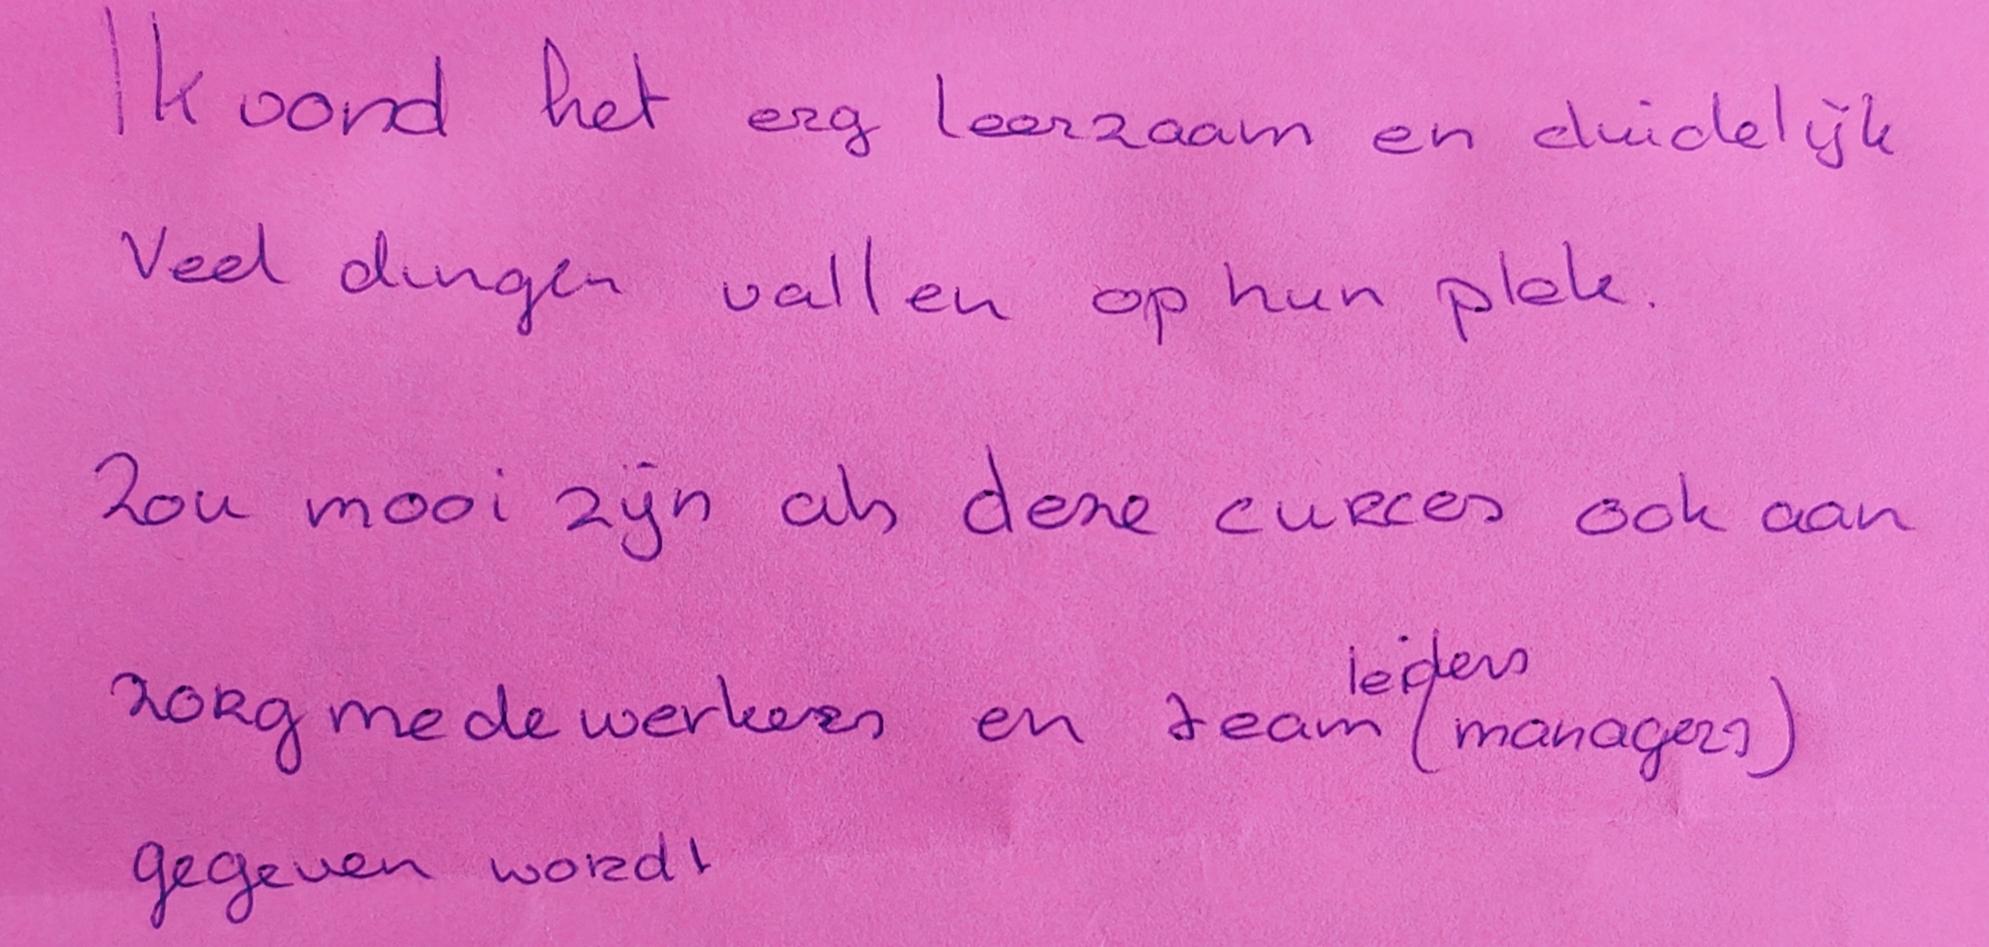 Ik vond het erg leerzaam en duidelijk
Veel dingen vallen op hun plek.
Zou mooi zijn als deze curces ook aan
zorgmedewerkers en teamleiders (managers)
gegeven wordt